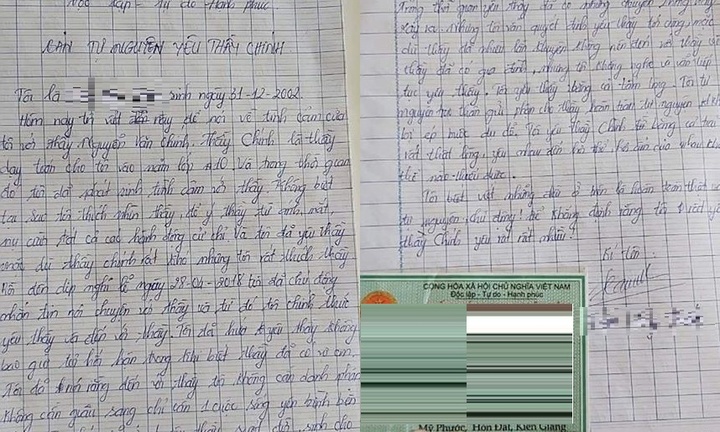 BẢN TỰ NGUYỆN YÊU THẦY CHÍNH
Tôi là sinh ngày 31-12-2002
Hôm nay tôi viết này để nói về tình cảm của
tôi với thầy Nguyễn Văn Chính. Thầy Chính là thầy
dạy toán cho tôi vào năm lớp A10. Và trong thời gian
đó tôi đã phát sinh tình cảm với thầy. Không biết
tại sao tôi thích nhìn thầy, để ý thầy từ ánh mắt,
nụ cười tất cả các hành động cử chỉ. Và tôi đã yêu thầy
mặc dù thầy Chính rất khó nhưng tôi rất thích thầy
Và đến dịp nghỉ lễ ngày 28-04-2018 tôi đã chủ động
nhắn tin nói chuyện với thầy và từ đó tôi chính thức
yêu thầy và đến với thầy. Tôi đã hứa yêu thầy không
bao giờ hối hận trong khi biết thầy đã có vợ con.
Tôi đã nói rằng đến với thầy tôi không cần danh phận
không cần giàu sang chỉ cần 1 cuộc sống yên bình bên
Trong thời gian yêu thầy đã có những chuyện không hay
xảy ra. Nhưng tôi vẫn quyết định yêu thầy vô cùng, mặc
dù thầy đã nhiều lần khuyên không nên đến với thầy vì
thầy đã có gia đình, nhưng tôi không nghe và vẫn tiếp
tục yêu thầy. Tôi yêu thầy bằng cả tấm lòng. Tôi tự
nguyện
bị ép buộc dụ dỗ. Tôi yêu thầy Chính từ bằng cả trái
rất thật lòng, yêu
nào
Tôi viết những điều ở trên là hoàn toàn thật và
tự nguyện, chủ động! Để khẳng định rằng tôi rất yêu
thầy Chính yêu rất rất nhiều!
Kí tên
CỘNG HÒA XÃ HỘI CHỦ NGHĨA VIỆT NAM
Độc lập - Tự do - Hạnh phúc
Mỹ Phước, Hòn Đất, Kiên Giang